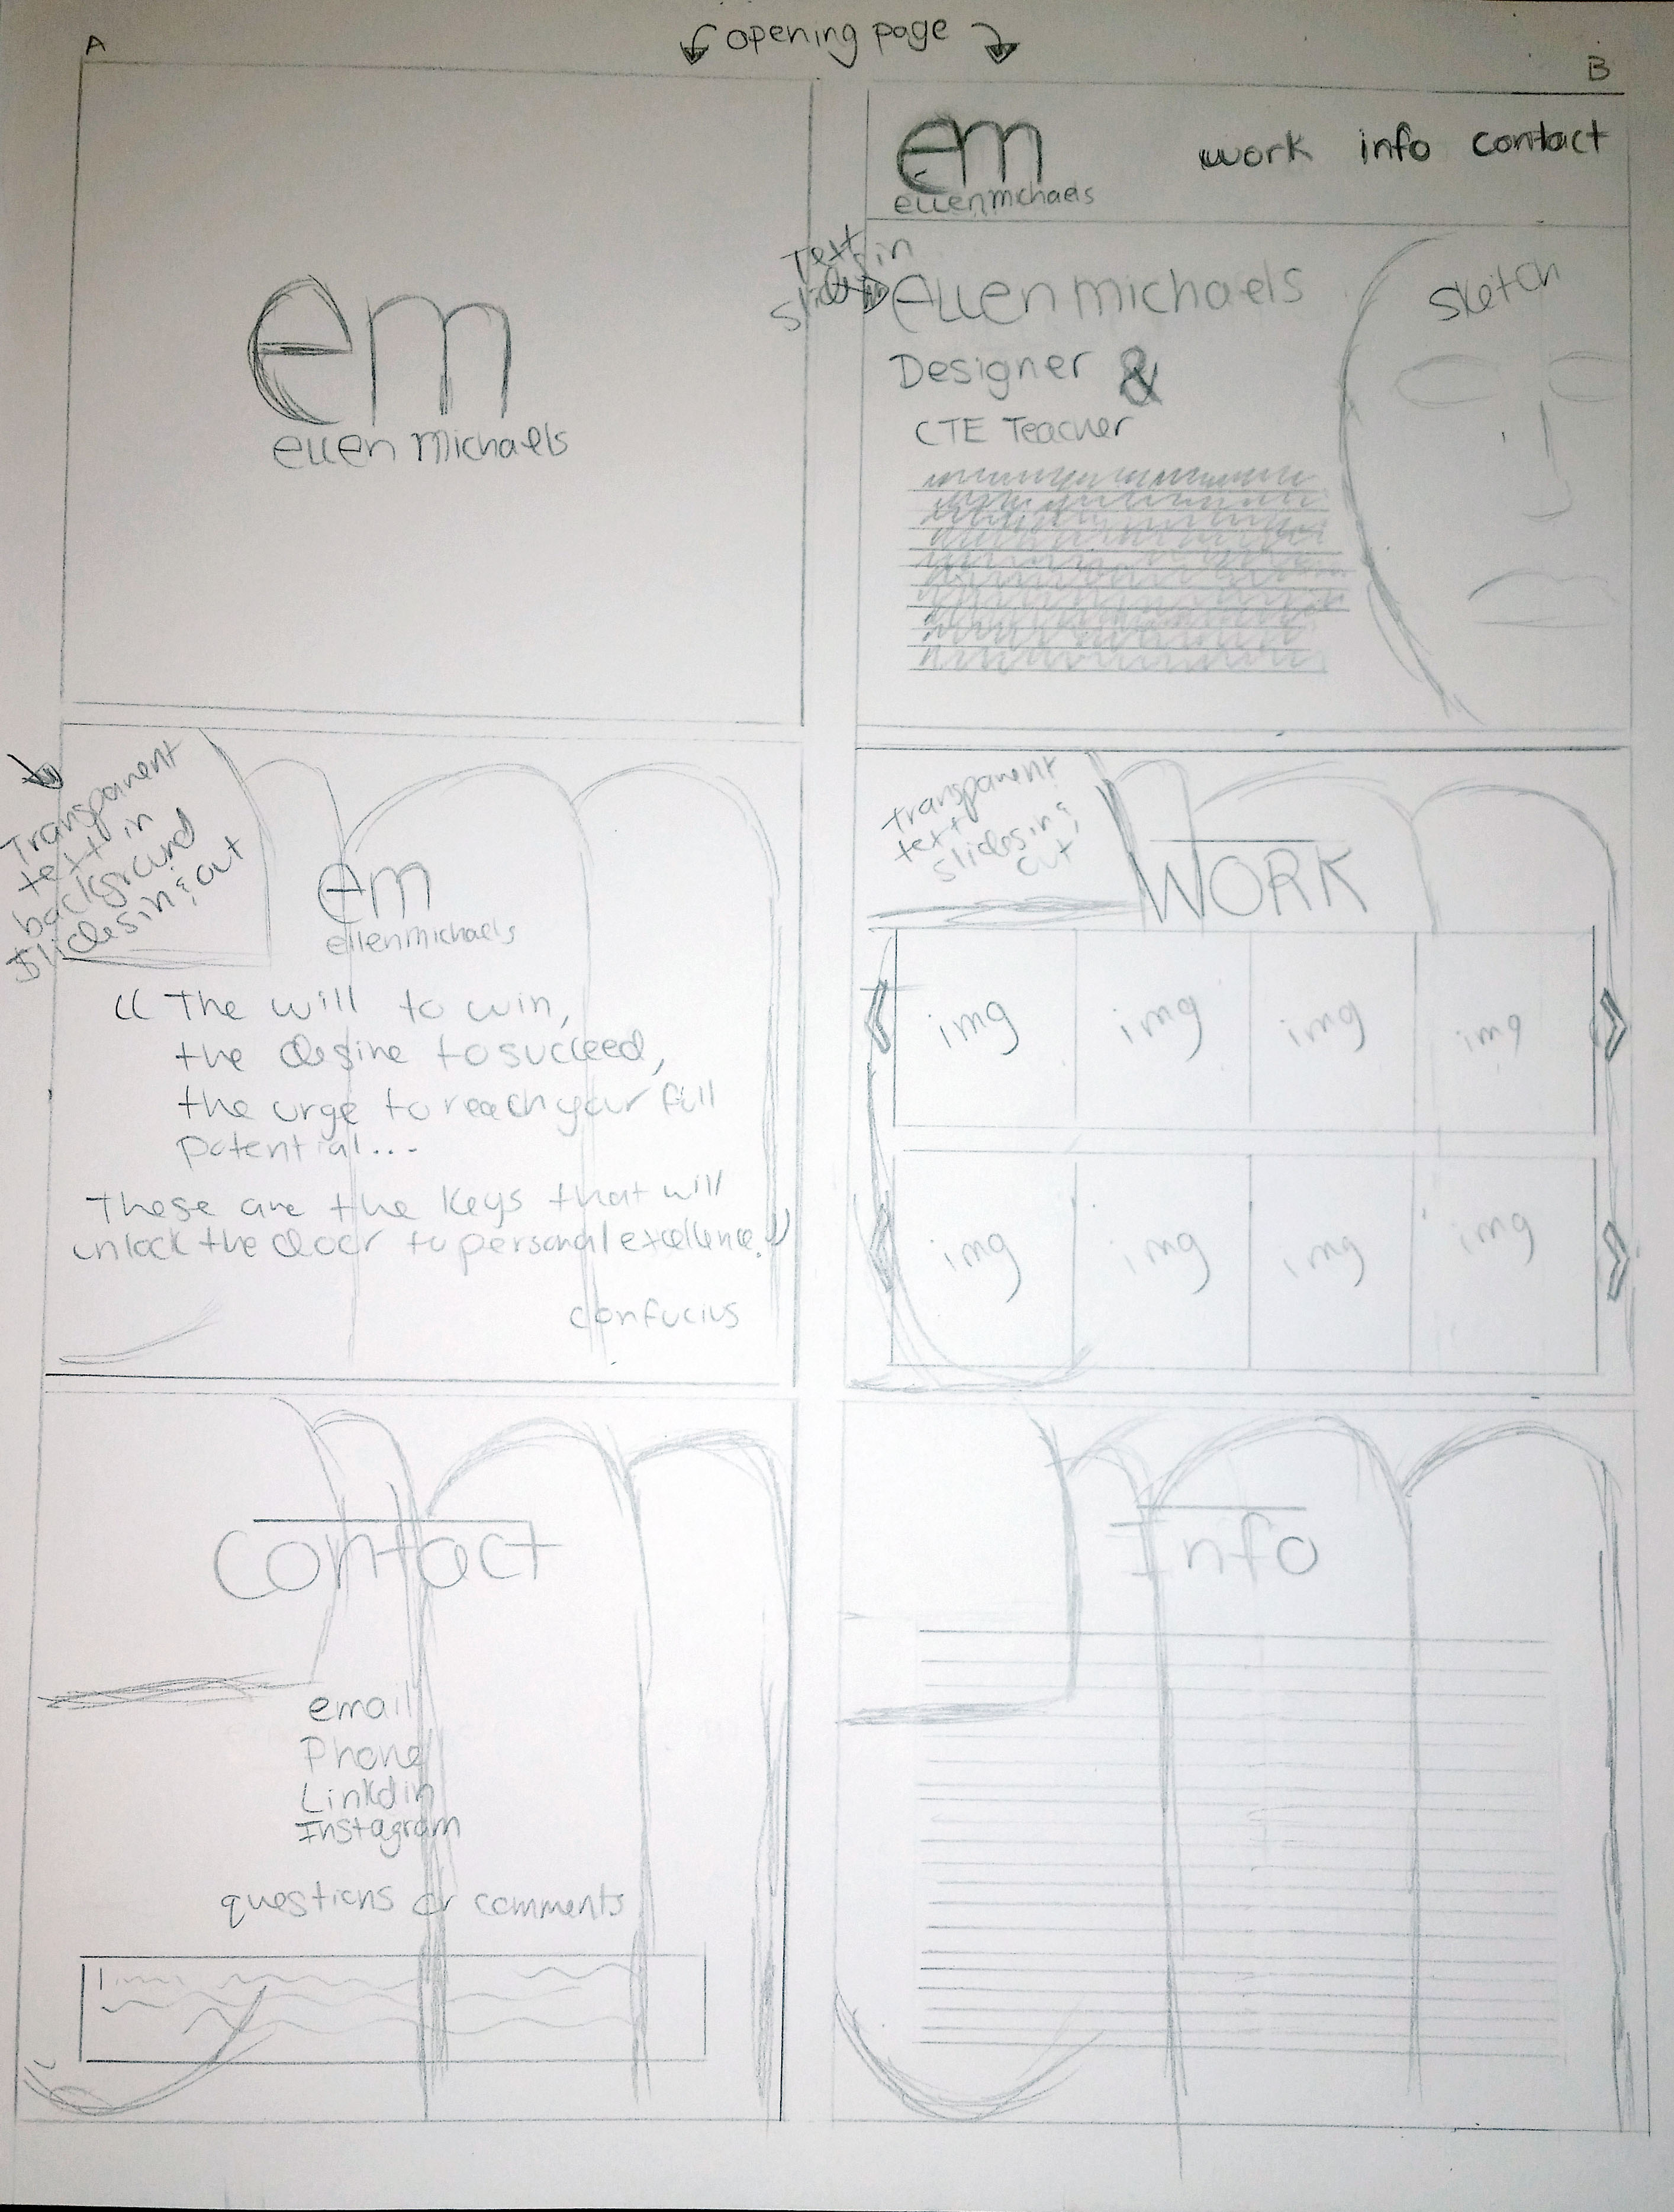 opening page
A
B
em
ellen michaels
em
ellenmichaels
work info contact
Text in
slides in
ellenmichaels
Designer &
CTE Teacher
sketch
Transparent
text in
background
slides in & out
em
ellenmichaels
“The will to win,
the desire to succeed,
the urge to reach your full
potential...
These are the keys that will
unlock the door to personal excellence.”
confucius
transparent
text
slides in &
out
WORK
img img img img
img img img img
contact
email
Phone
Linkdin
Instagram
questions or comments
Info